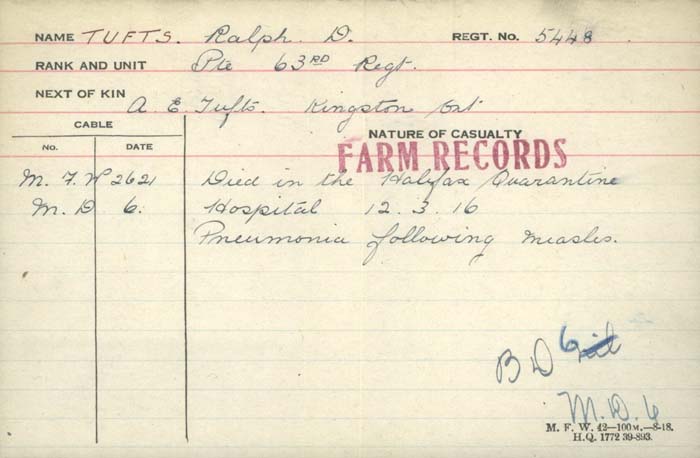 NAME TUFTS. Ralph. D. REGT. No. 5448
RANK AND UNIT Pte 63RD Regt.
NEXT OF KIN A. E. Tufts. Kingston Ont
CABLE
No. DATE
NATURE OF CASUALTY
FARM RECORDS
M. F. W 2621 Died in the Halifax Quarantine
M. D 6. Hospital 12.3.16
Pneumonia following measles.
B D 6
M. D. 6
M. F. W. 42—100M.—8-18.
H.Q. 1772 39-893.